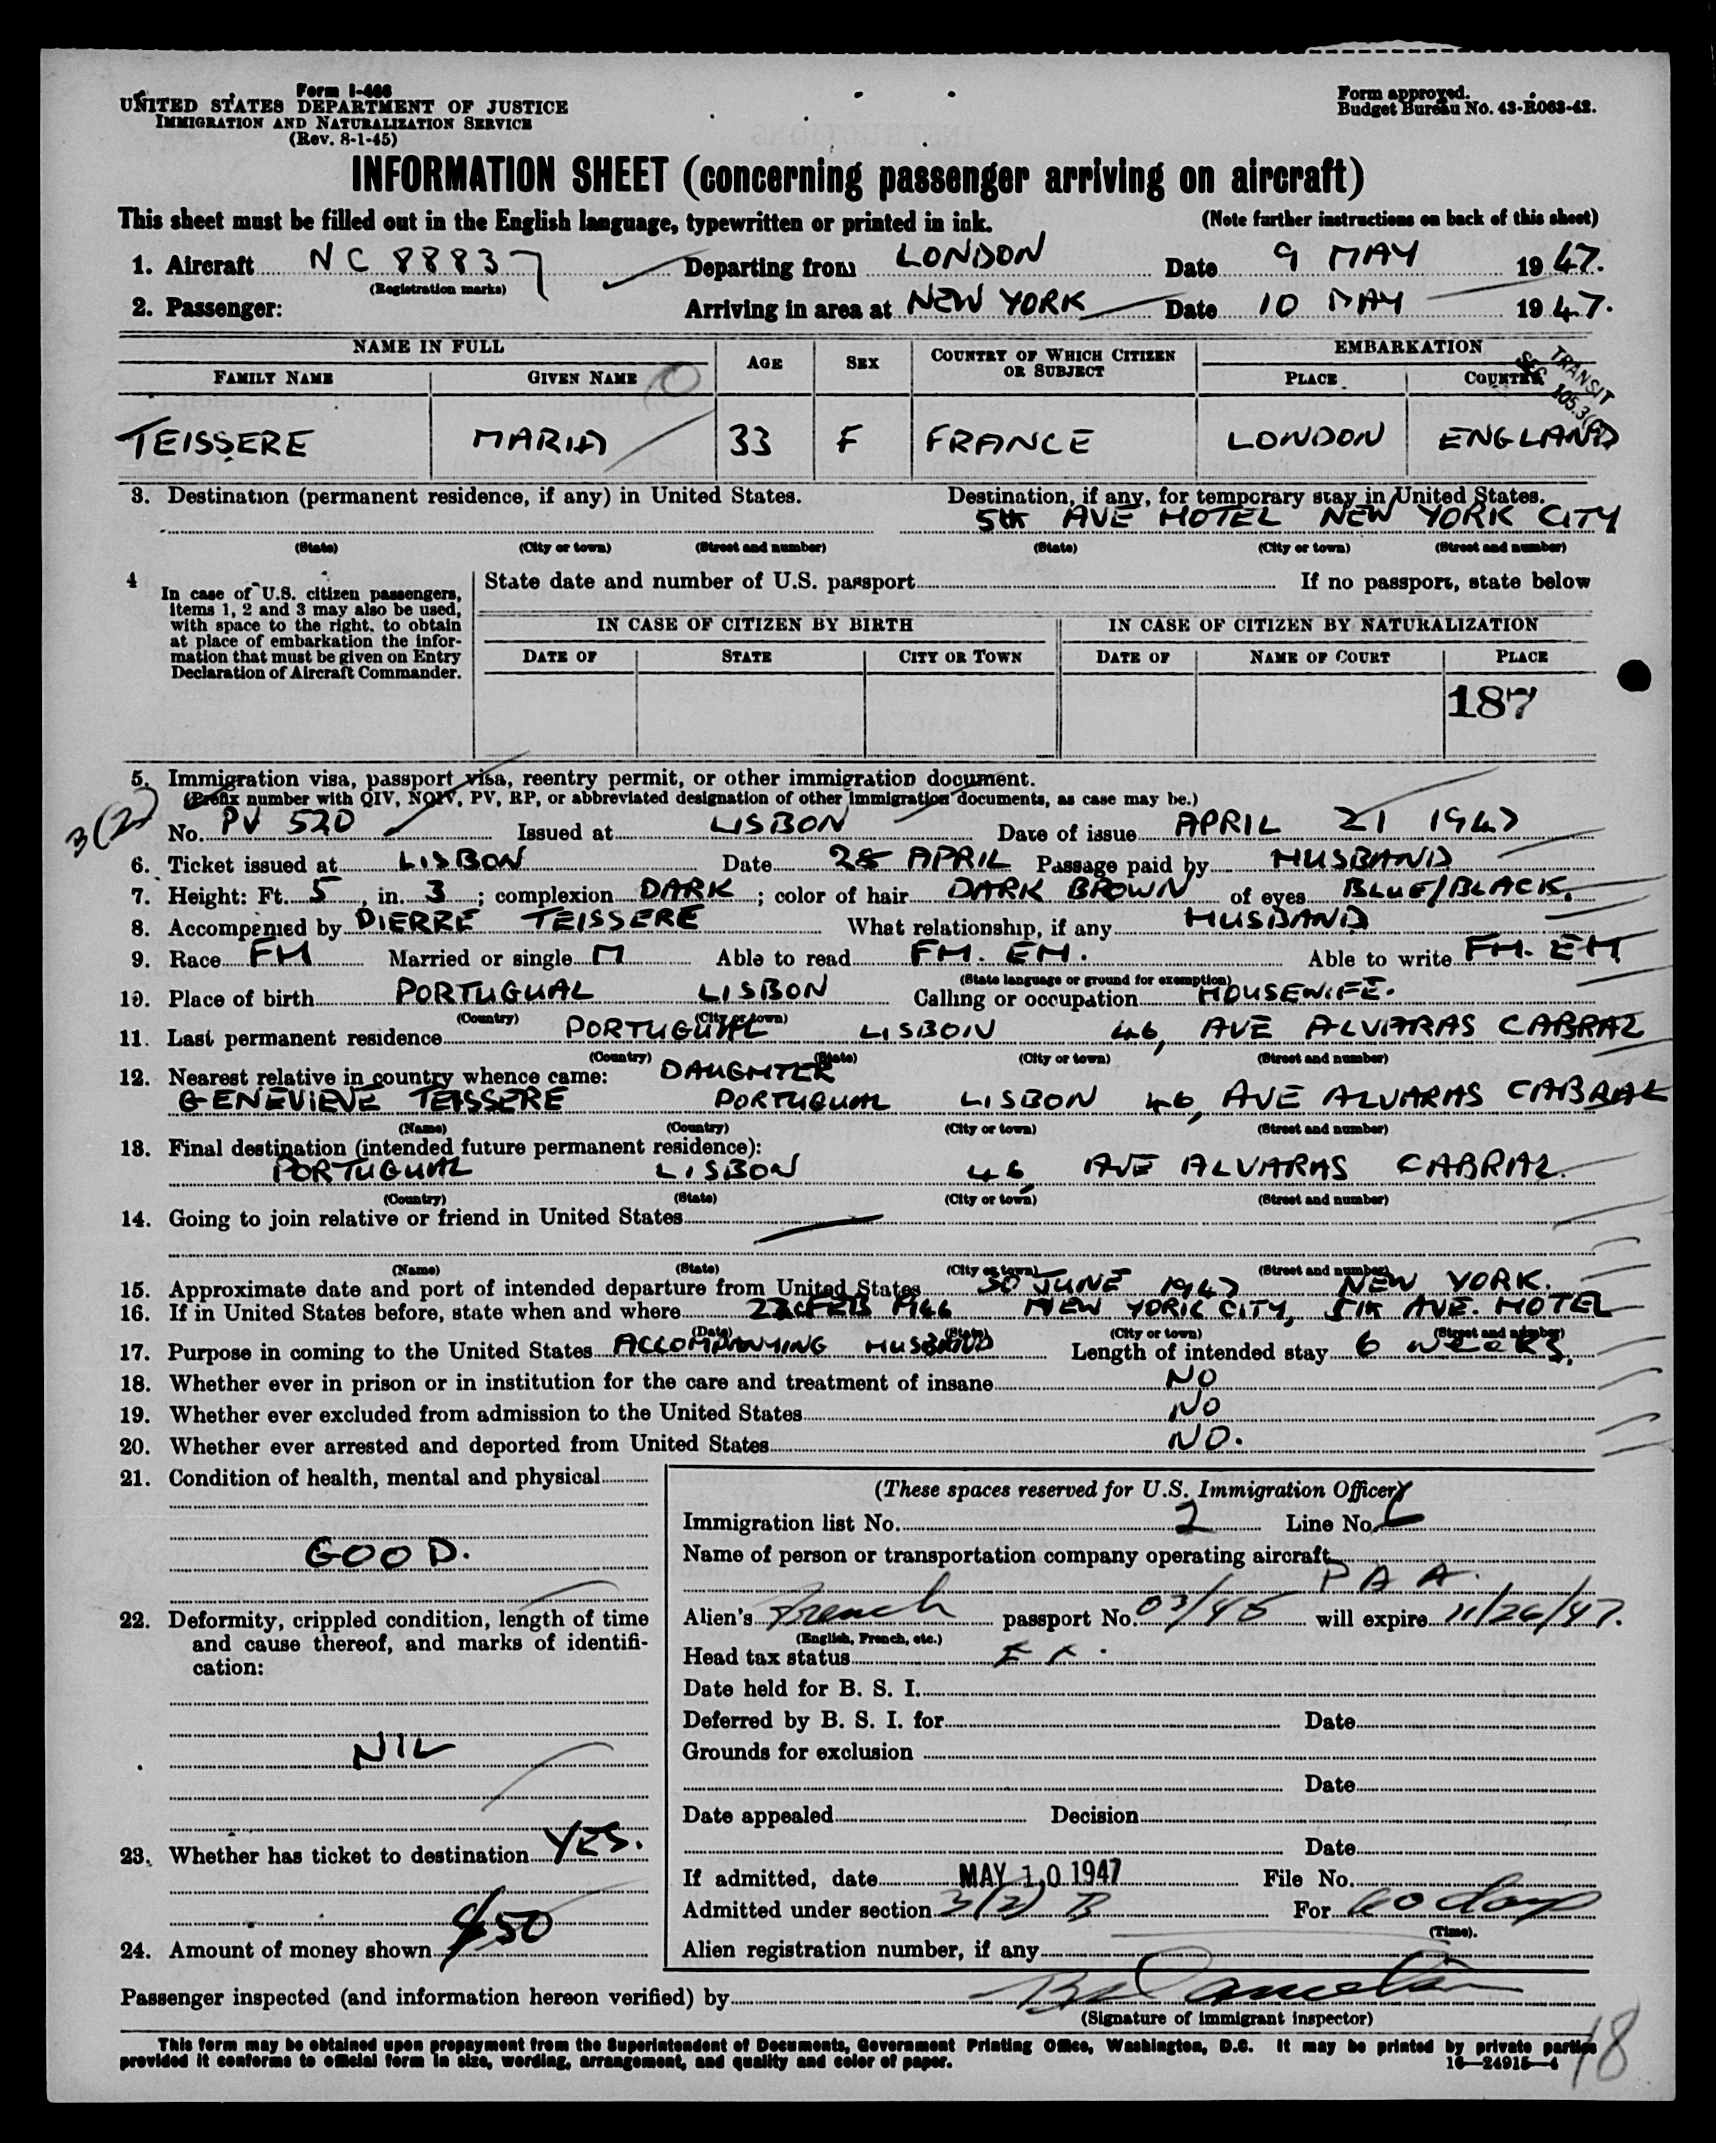 Form I-466
UNITED STATES DEPARTMENT OF JUSTICE
IMMIGRATION AND NATURALIZATION SERVICE
(Rev. 8-1-45)
Form approved.
Budget Bureau No. 43-R063-42.
INFORMATION SHEET (concerning passenger arriving on aircraft)
This sheet must be filled out in the English language, typewritten or printed in ink. (Note further instructions on back of this sheet)
1. Aircraft NC 88837 Departing from LONDON Date 9 MAY 1947.
(Registration marks)
2. Passenger: Arriving in area at NEW YORK Date 10 MAY 1947.
NAME IN FULL AGE SEX COUNTRY OF WHICH CITIZEN OR SUBJECT EMBARKATION
FAMILY NAME GIVEN NAME PLACE COUNTRY
TRANSIT
SEC. 105.3
TEISSERE MARIA 33 F FRANCE LONDON ENGLAND
3. Destination (permanent residence, if any) in United States. Destination, if any, for temporary stay in United States.
5th AVE HOTEL NEW YORK CITY
(State) (City or town) (Street and number) (State) (City or town) (Street and number)
4 In case of U.S. citizen passengers, items 1, 2 and 3 may also be used, with space to the right, to obtain at place of embarkation the information that must be given on Entry Declaration of Aircraft Commander.
State date and number of U.S. passport If no passport, state below
IN CASE OF CITIZEN BY BIRTH IN CASE OF CITIZEN BY NATURALIZATION
DATE OF STATE CITY OR TOWN DATE OF NAME OF COURT PLACE
187
5. Immigration visa, passport visa, reentry permit, or other immigration document.
(Prefix number with QIV, NQIV, PV, RP, or abbreviated designation of other immigration documents, as case may be.)
3(2)
No. PV 520 Issued at LISBON Date of issue APRIL 21 1947
6. Ticket issued at LISBON Date 28 APRIL Passage paid by HUSBAND
7. Height: Ft. 5, in. 3; complexion DARK; color of hair DARK BROWN of eyes BLUE/BLACK.
8. Accompanied by PIERRE TEISSERE What relationship, if any HUSBAND
9. Race FH Married or single M Able to read FH. EH. Able to write FH. EH
(State language or ground for exemption)
10. Place of birth PORTUGUAL LISBON Calling or occupation HOUSEWIFE.
(Country) (City or town)
11. Last permanent residence PORTUGUAL LISBON 46, AVE ALVARAS CABRAL
(Country) (State) (City or town) (Street and number)
12. Nearest relative in country whence came: DAUGHTER
GENEVIEVE TEISSERE PORTUGUAL LISBON 46, AVE ALVARAS CABRAL
(Name) (Country) (City or town) (Street and number)
13. Final destination (intended future permanent residence):
PORTUGUAL LISBON 46, AVE ALVARAS CABRAL.
(Country) (State) (City or town) (Street and number)
14. Going to join relative or friend in United States —
(Name) (State) (City or town) (Street and number)
15. Approximate date and port of intended departure from United States 30 JUNE 1947 NEW YORK.
16. If in United States before, state when and where FEB 1946 NEW YORK CITY, 5th AVE. HOTEL
(Date) (State) (City or town) (Street and number)
17. Purpose in coming to the United States ACCOMPANYING HUSBAND Length of intended stay 6 weeks.
18. Whether ever in prison or in institution for the care and treatment of insane NO
19. Whether ever excluded from admission to the United States NO
20. Whether ever arrested and deported from United States NO.
21. Condition of health, mental and physical
GOOD.
22. Deformity, crippled condition, length of time and cause thereof, and marks of identification:
NIL
23. Whether has ticket to destination YES.
24. Amount of money shown $50
(These spaces reserved for U.S. Immigration Officer)
Immigration list No. 2 Line No.
Name of person or transportation company operating aircraft
PAA.
Alien's French passport No. 03/45 will expire 11/26/47.
(English, French, etc.)
Head tax status EX.
Date held for B. S. I.
Deferred by B. S. I. for Date
Grounds for exclusion
Date
Date appealed Decision
Date
If admitted, date MAY 10 1947 File No.
Admitted under section 3(2) B For 60 days
(Time).
Alien registration number, if any
Passenger inspected (and information hereon verified) by
(Signature of immigrant inspector)
This form may be obtained upon prepayment from the Superintendent of Documents, Government Printing Office, Washington, D.C. It may be printed by private parties
provided it conforms to official form in size, wording, arrangement, and quality and color of paper. 16—24915-4
18